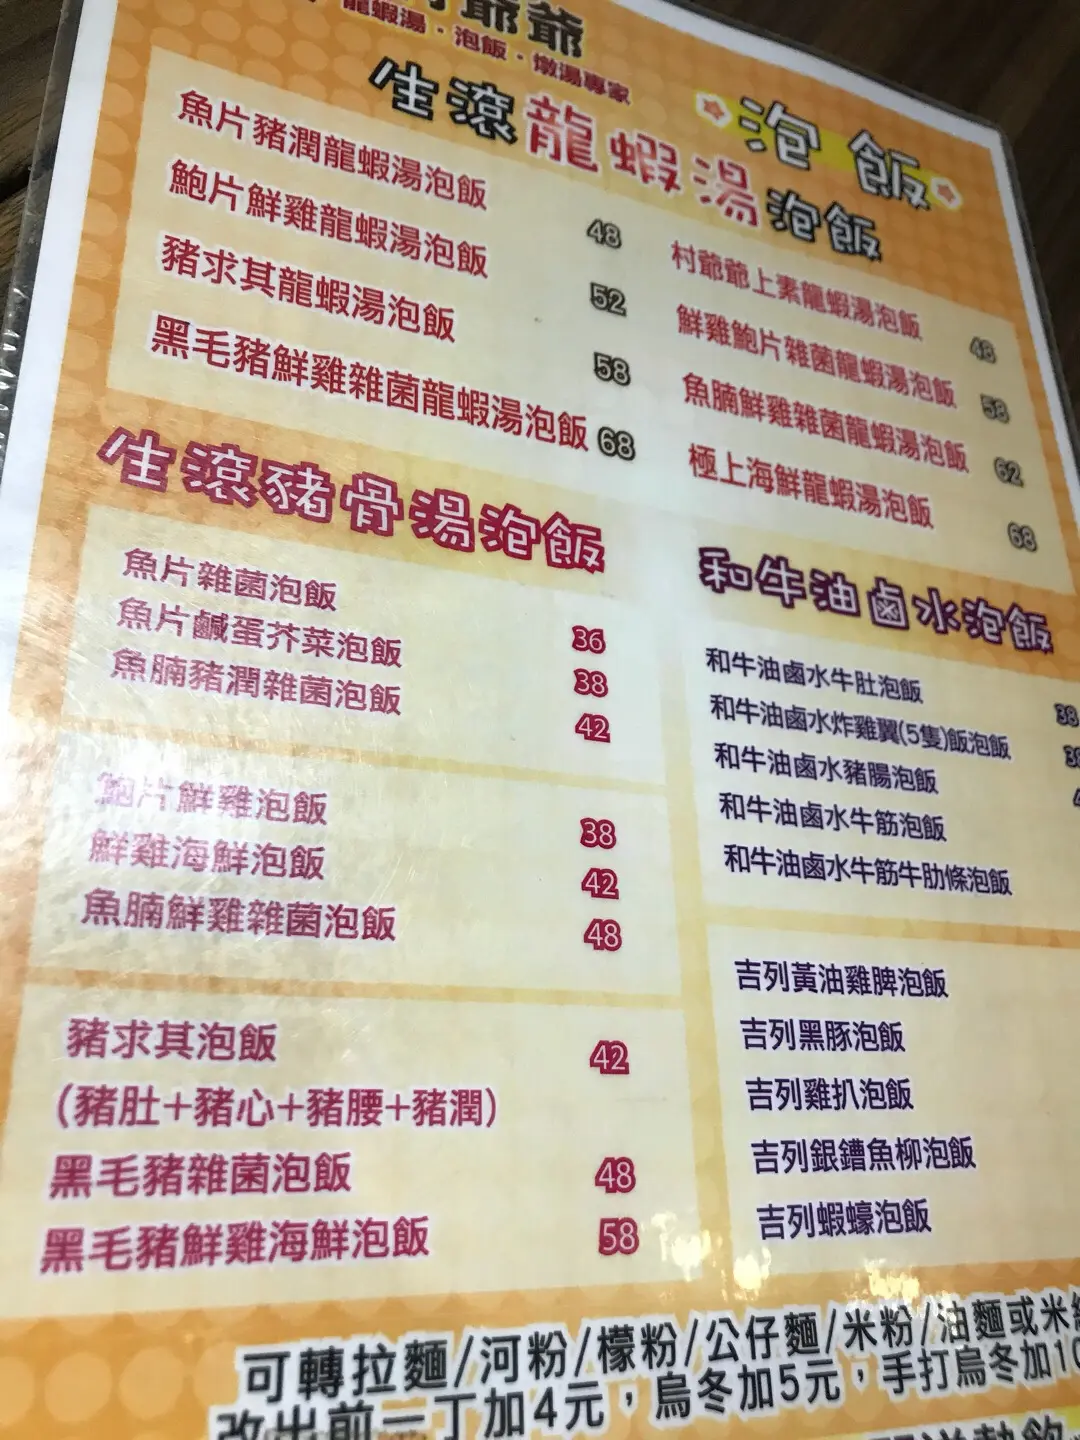 爺爺
龍蝦湯·泡飯·燉湯專家
泡飯
生滾龍蝦湯泡飯
魚片豬潤龍蝦湯泡飯 48
鮑片鮮雞龍蝦湯泡飯 52
豬求其龍蝦湯泡飯 58
黑毛豬鮮雞雜菌龍蝦湯泡飯 68
村爺爺上素龍蝦湯泡飯 48
鮮雞鮑片雜菌龍蝦湯泡飯 58
魚腩鮮雞雜菌龍蝦湯泡飯 62
極上海鮮龍蝦湯泡飯 68
生滾豬骨湯泡飯
魚片雜菌泡飯 36
魚片鹹蛋芥菜泡飯 38
魚腩豬潤雜菌泡飯 42
鮑片鮮雞泡飯 38
鮮雞海鮮泡飯 42
魚腩鮮雞雜菌泡飯 48
豬求其泡飯 42
(豬肚+豬心+豬腰+豬潤)
黑毛豬雜菌泡飯 48
黑毛豬鮮雞海鮮泡飯 58
和牛油鹵水泡飯
和牛油鹵水牛肚泡飯 38
和牛油鹵水炸雞翼(5隻)飯泡飯
和牛油鹵水豬腸泡飯
和牛油鹵水牛筋泡飯
和牛油鹵水牛筋牛肋條泡飯
吉列黃油雞脾泡飯
吉列黑豚泡飯
吉列雞扒泡飯
吉列銀鱈魚柳泡飯
吉列蝦蠔泡飯
可轉拉麵/河粉/檬粉/公仔麵/米粉/油麵或米
改出前一丁加4元，烏冬加5元，手打烏冬加10